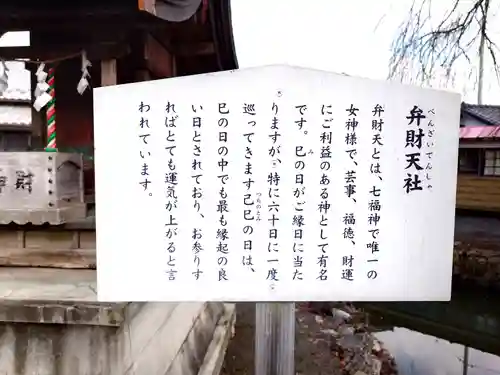 弁財天社
べんざいてんしゃ
弁財天とは、七福神で唯一の
女神様で、芸事、福徳、財運
にご利益のある神として有名
です。巳の日がご縁日に当た
りますが、特に六十日に一度
巡ってきます己巳の日は、
巳の日の中でも最も縁起の良
い日とされており、お参りす
ればとても運気が上がると言
われています。
み
つちのとみ